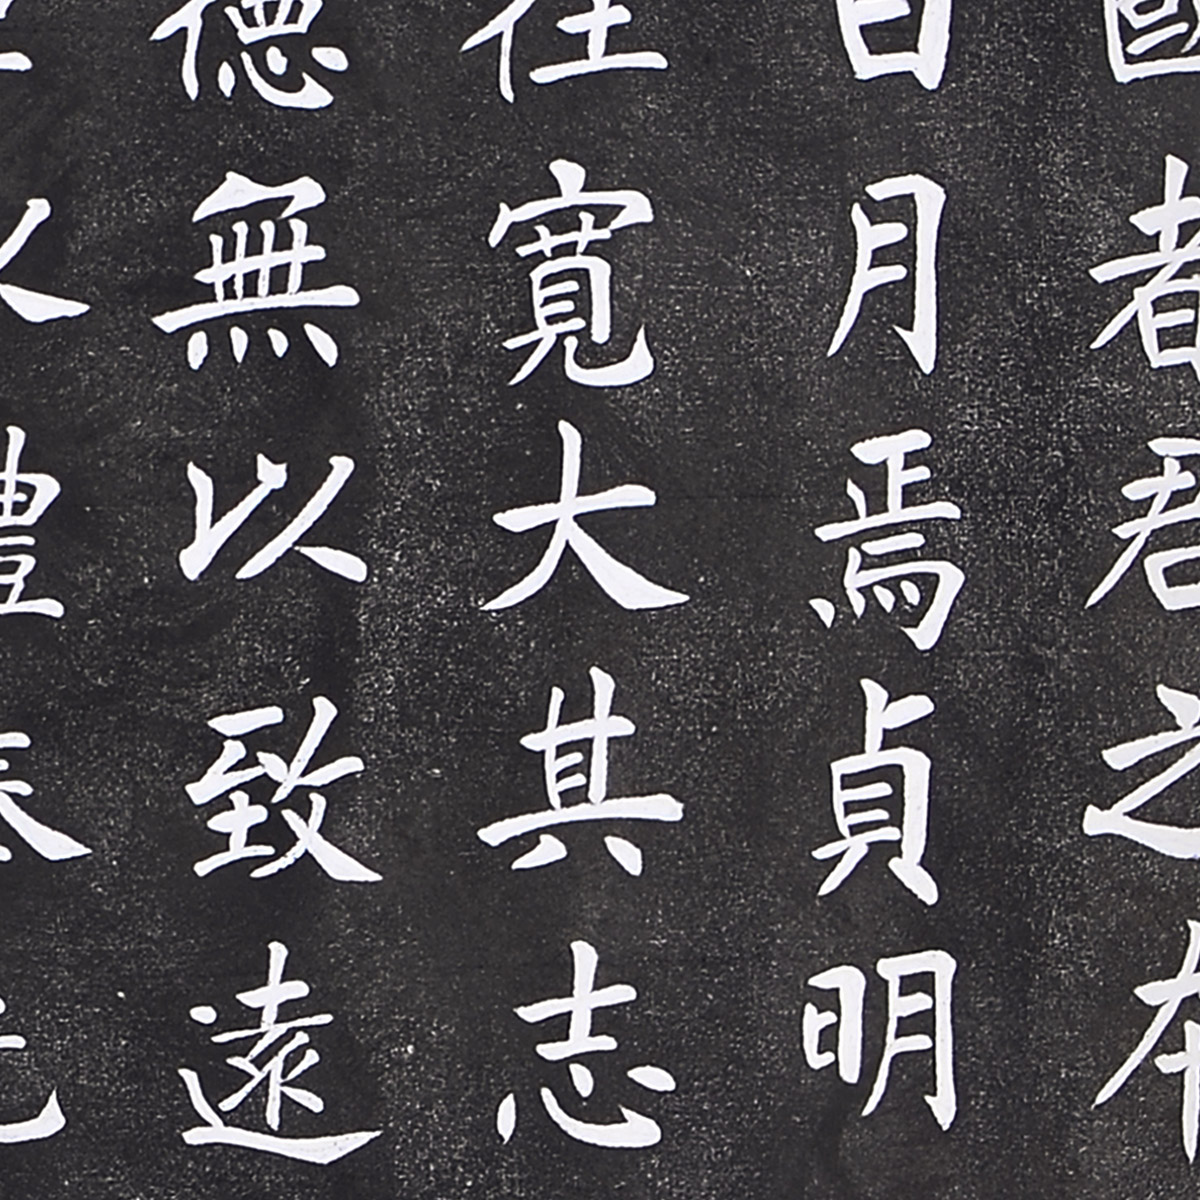 國者君之本
日月焉貞明
往寬大其志
德無以致遠
以禮奉先